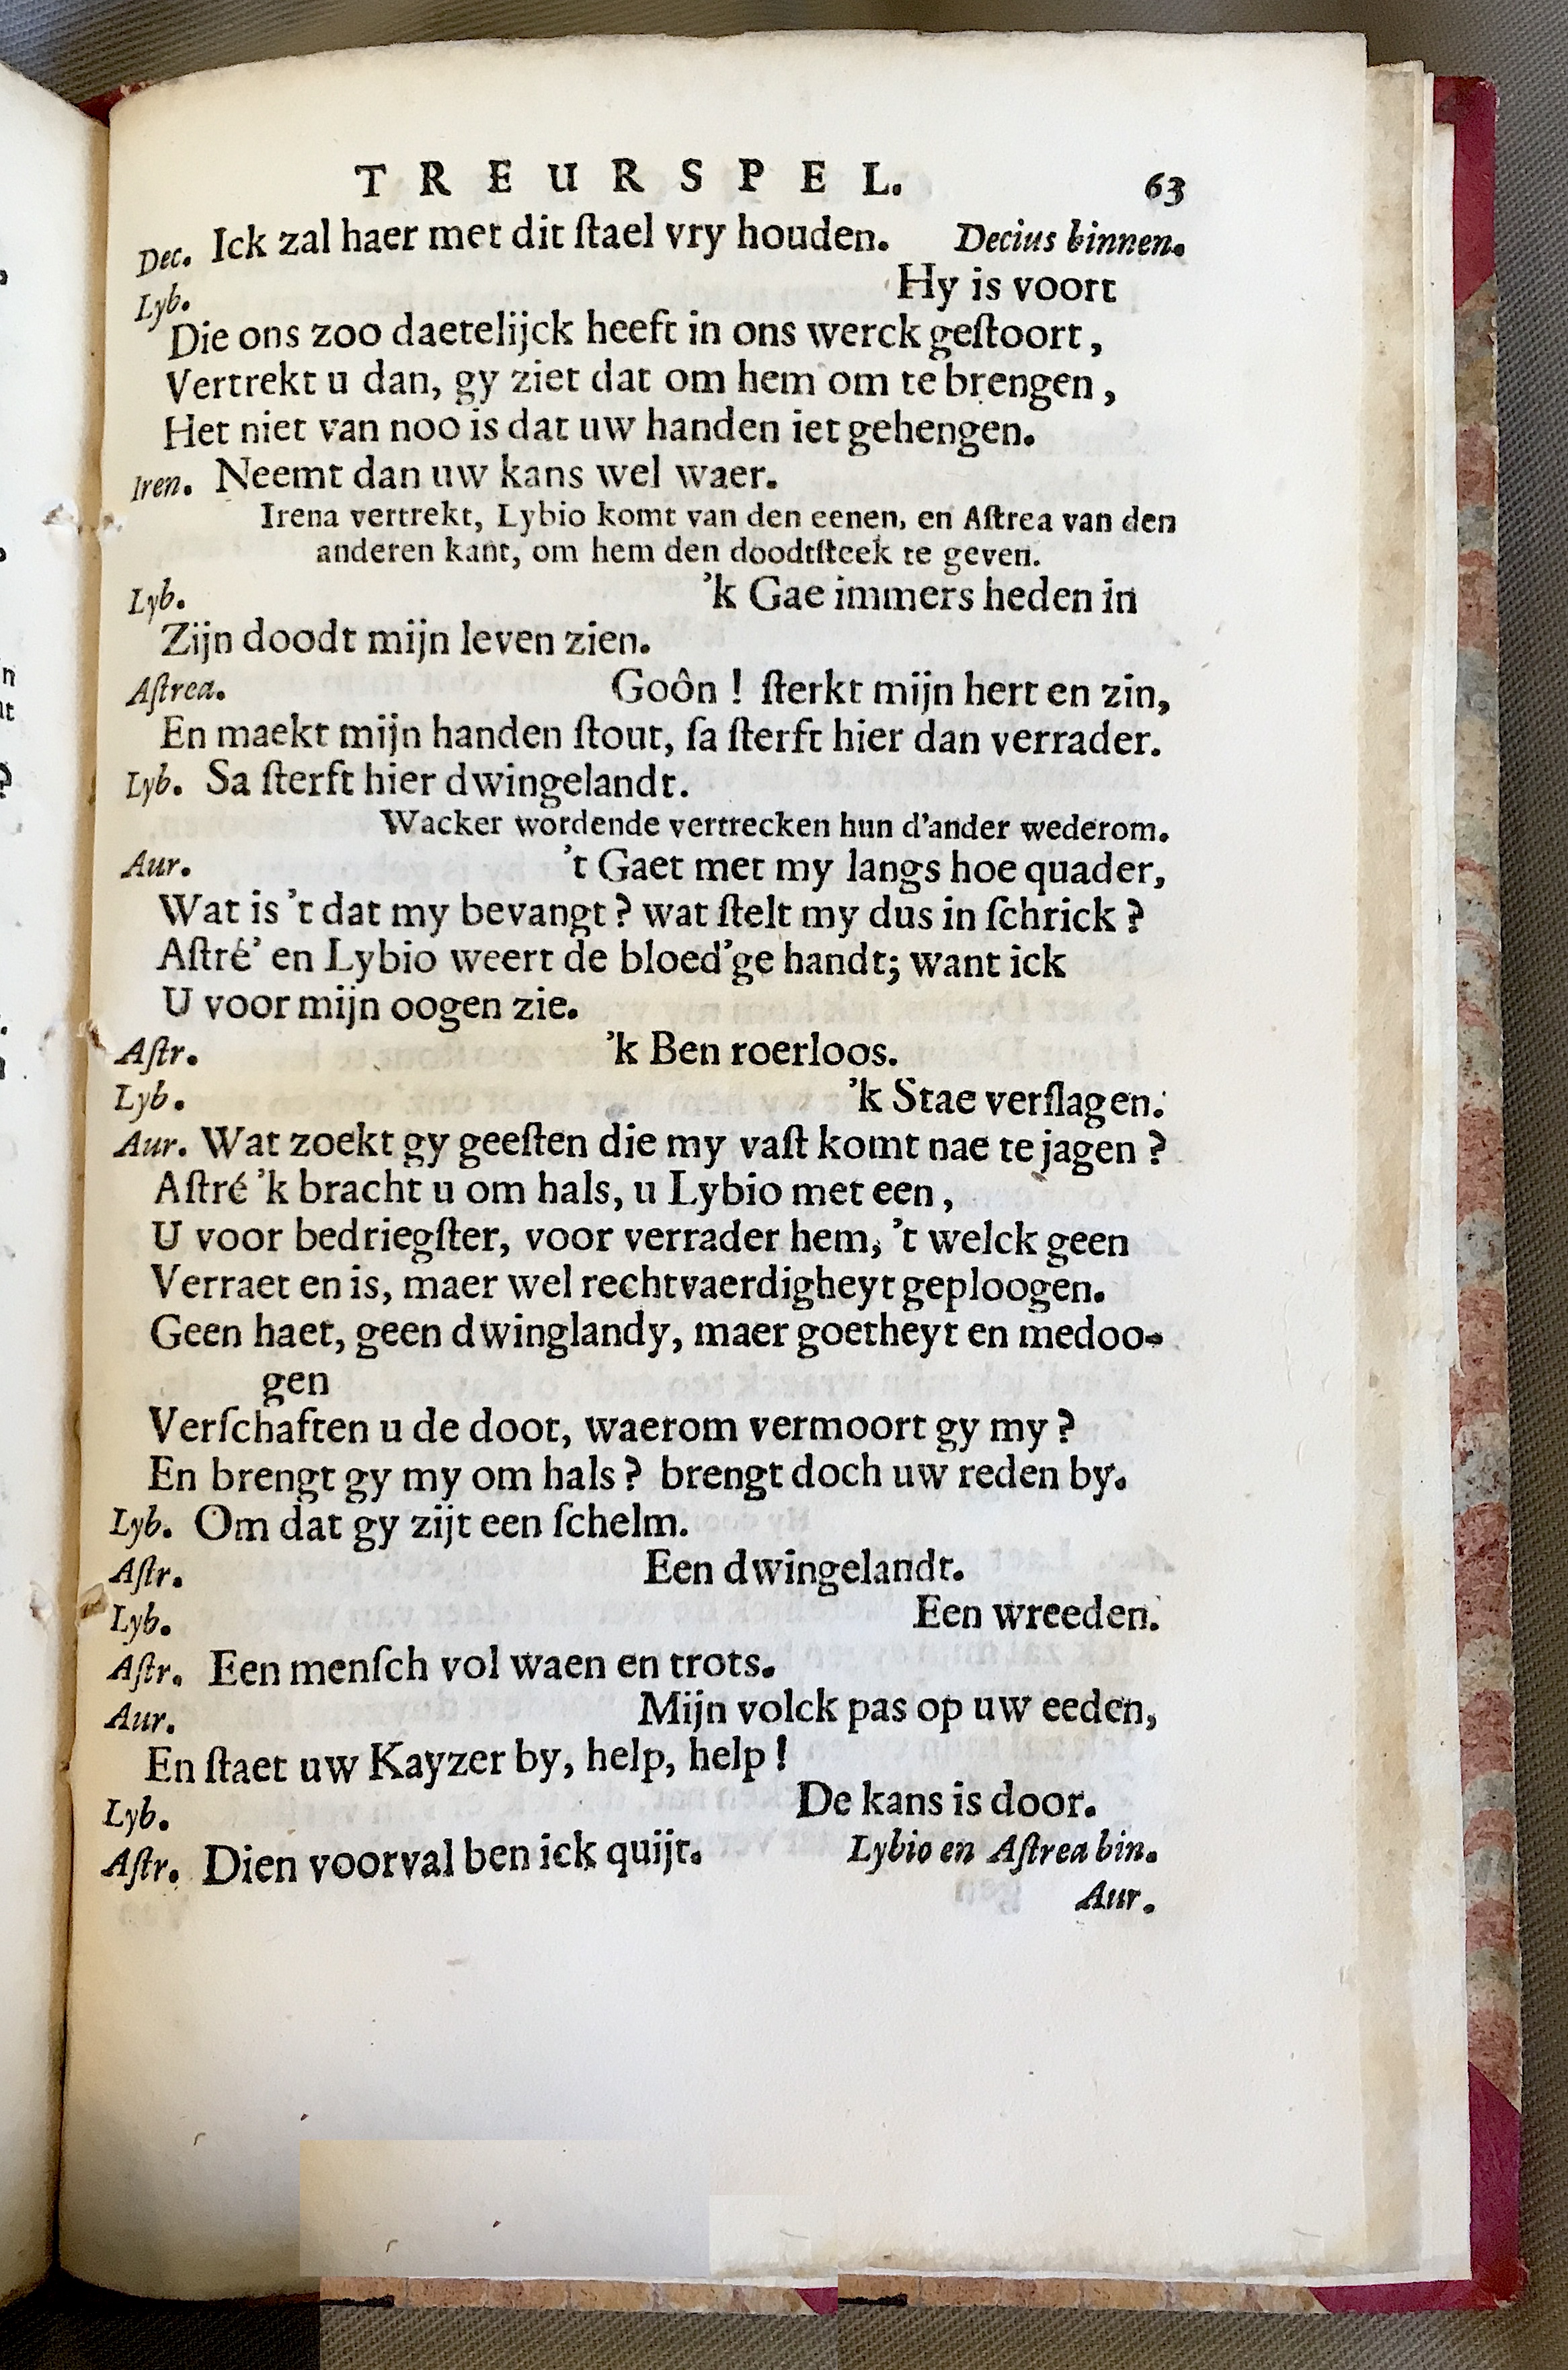 TREURSPEL. 63
Dec. Ick zal haer met dit ſtael vry houden. Decius binnen.
Lyb. Hy is voort
Die ons zoo daetelijck heeft in ons werck geſtoort,
Vertrekt u dan, gy ziet dat om hem om te brengen,
Het niet van noo is dat uw handen iet gehengen.
Iren. Neemt dan uw kans wel waer.
Irena vertrekt, Lybio komt van den eenen, en Aſtrea van den
anderen kant, om hem den doodtſteek te geven.
Lyb. 'k Gae immers heden in
Zijn doodt mijn leven zien.
Aſtrea. Goôn! ſterkt mijn hert en zin,
En maekt mijn handen ſtout, ſa ſterft hier dan verrader.
Lyb. Sa ſterft hier dwingelandt.
Wacker wordende vertrecken hun d'ander wederom.
Aur. 't Gaet met my langs hoe quader,
Wat is 't dat my bevangt? wat ſtelt my dus in ſchrick?
Aſtré' en Lybio weert de bloed'ge handt; want ick
U voor mijn oogen zie.
Aſtr. 'k Ben roerloos.
Lyb. 'k Stae verſlagen.
Aur. Wat zoekt gy geeſten die my vaſt komt nae te jagen?
Aſtré 'k bracht u om hals, u Lybio met een,
U voor bedriegſter, voor verrader hem, 't welck geen
Verraet en is, maer wel rechtvaerdigheyt geploogen.
Geen haet, geen dwinglandy, maer goetheyt en medoo-
gen
Verſchaften u de doot, waerom vermoort gy my?
En brengt gy my om hals? brengt doch uw reden by.
Lyb. Om dat gy zijt een ſchelm.
Aſtr. Een dwingelandt.
Lyb. Een wreeden.
Aſtr. Een menſch vol waen en trots.
Aur. Mijn volck pas op uw eeden,
En ſtaet uw Kayzer by, help, help!
Lyb. De kans is door.
Aſtr. Dien voorval ben ick quijt. Lybio en Aſtrea bin.
Aur.